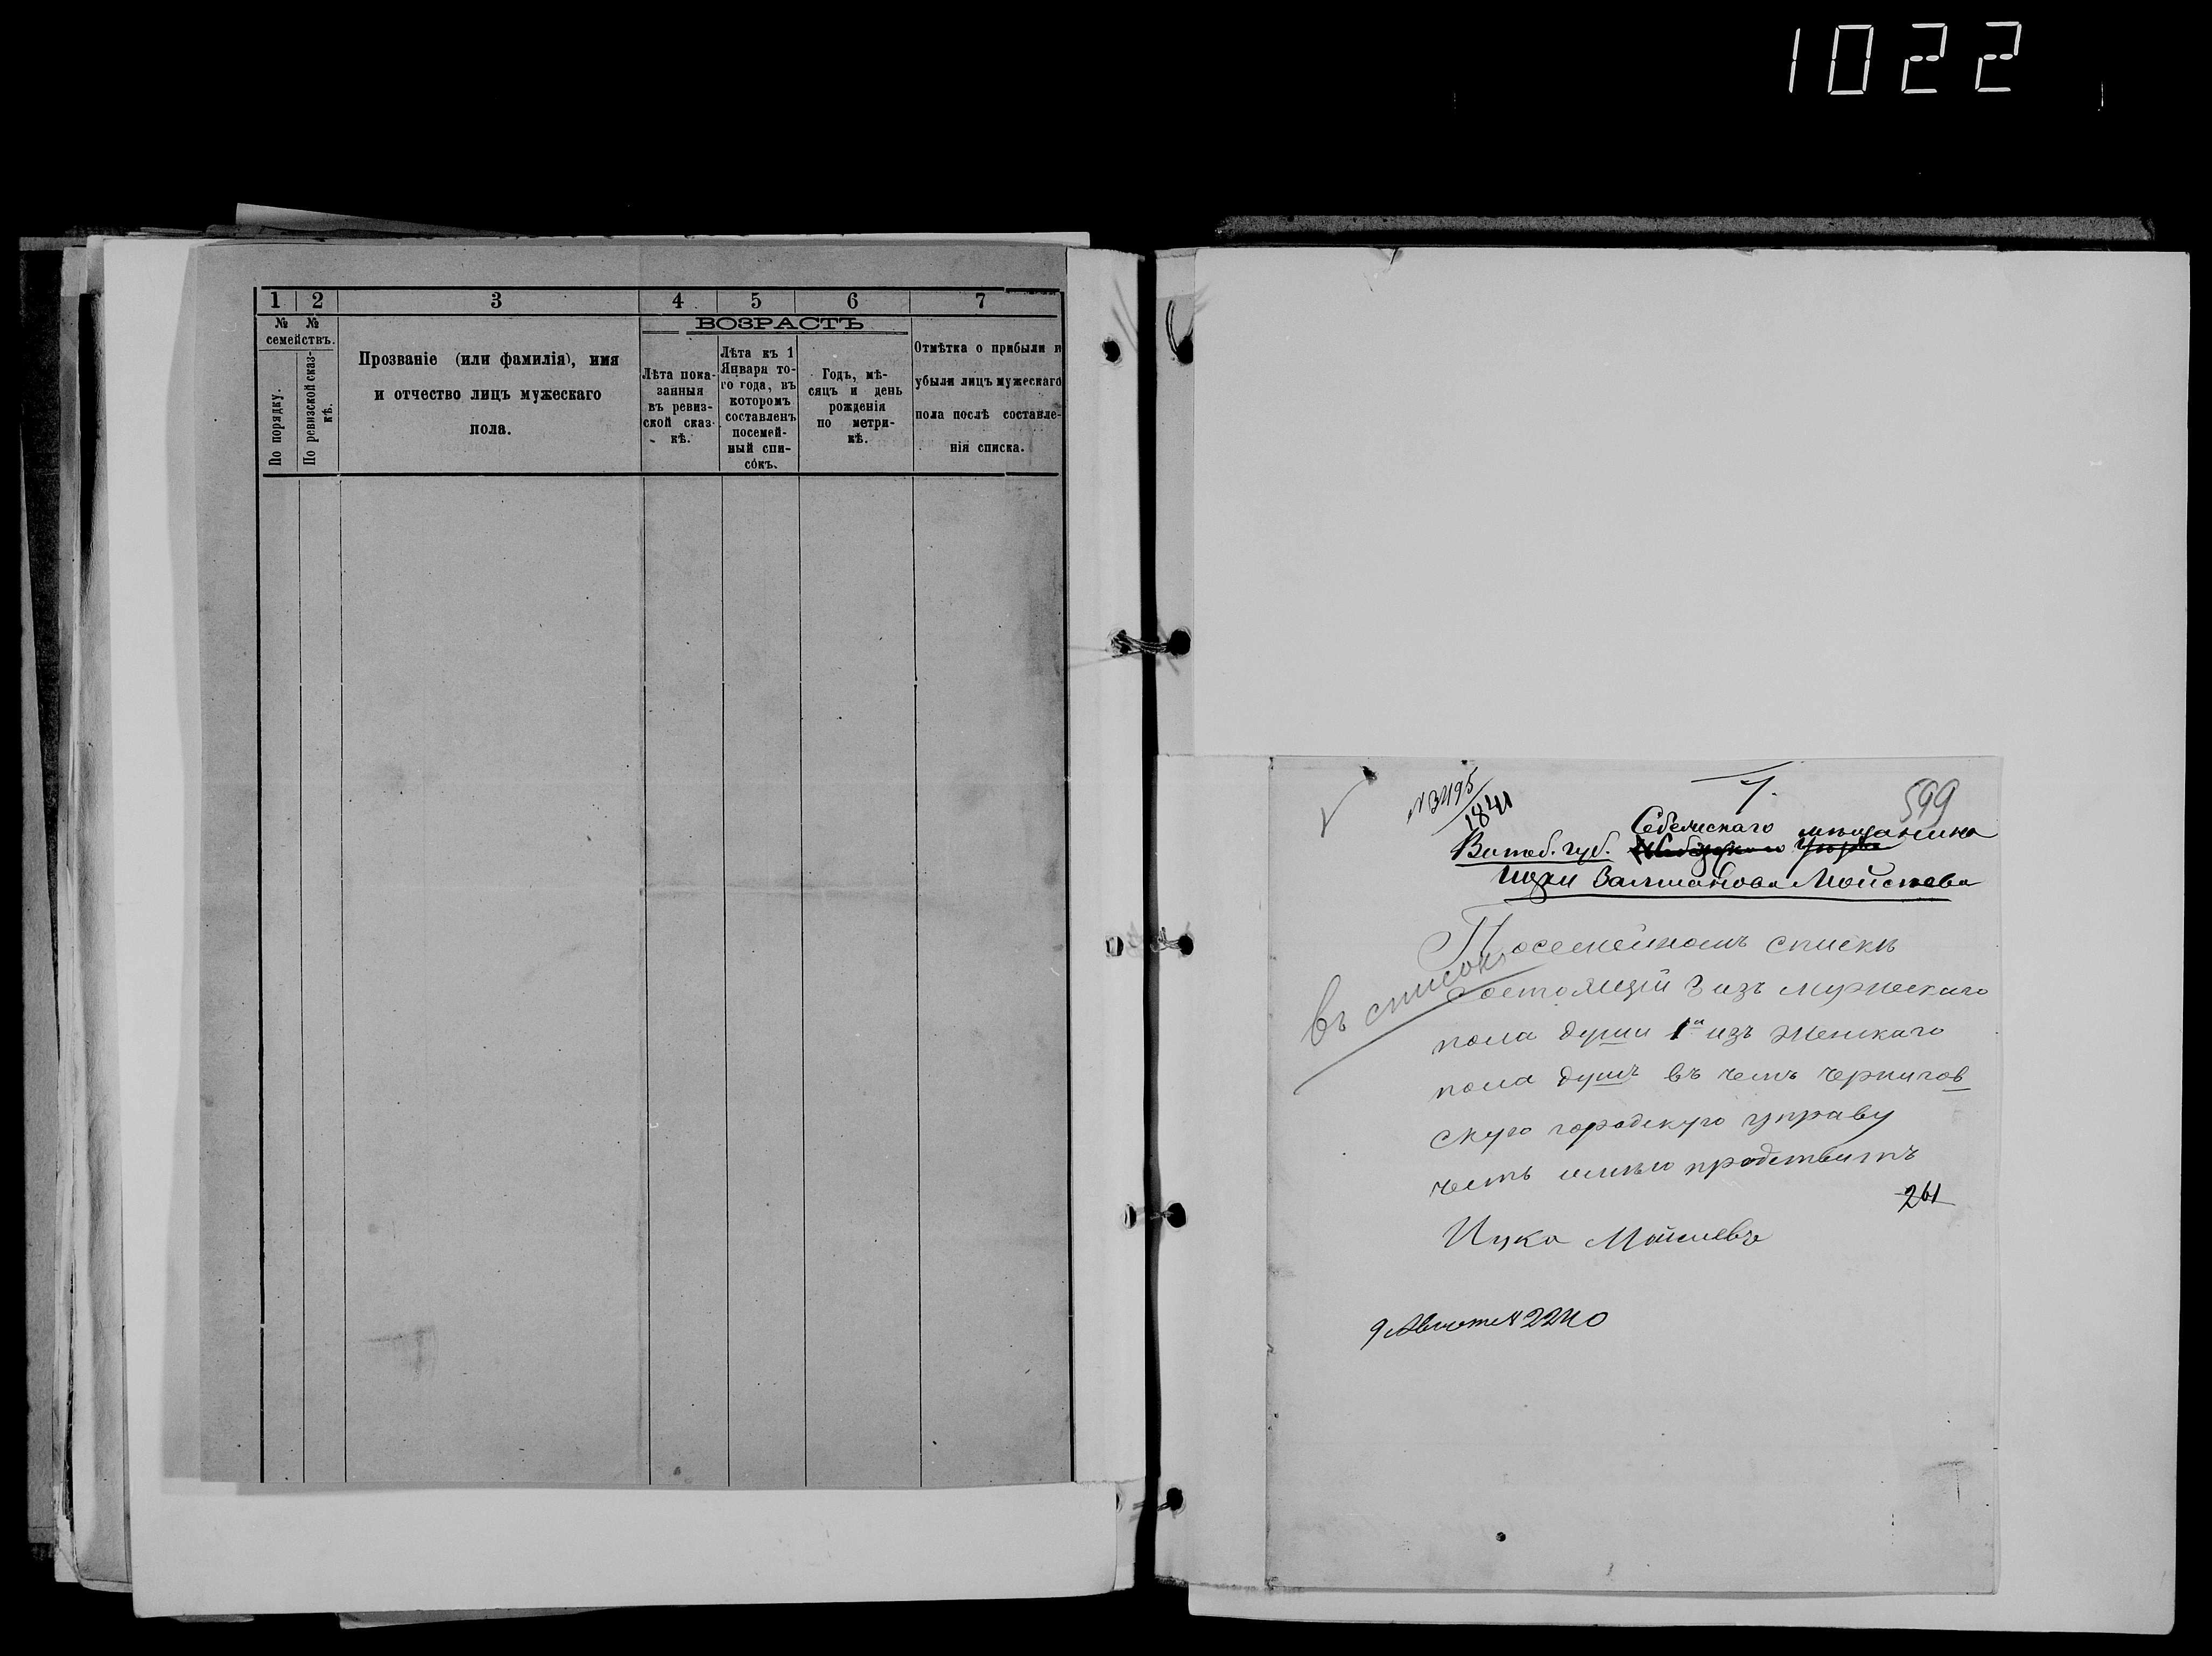 1022
1 2 3 4 5 6 7
№ № семействъ.
По порядку.
По ревизской сказ-
кѣ.
Прозваніе (или фамилія), имя
и отчество лицъ мужескаго
пола.
ВОЗРАСТЪ
Лѣта пока-
занныя
въ ревиз-
ской сказ-
кѣ.
Лѣта къ 1
Января то-
го года, въ
которомъ
составленъ
посемей-
ный спи-
сокъ.
Годъ, мѣ-
сяцъ и день
рожденія
по метри-
кѣ.
Отмѣтка о прибыли и
убыли лицъ мужескаго
пола послѣ составле-
нія списка.
599
Себежскаго мѣщанина
Витеб. губ.
Ицки Залманова Мойсеева
въ списокъ
Посемейномъ спискѣ
состоящій 3 изъ мужескаго
пола души 1а изъ женскаго
пола душъ въ чемъ Чернигов
скую городскую управу
честь имѣю
261
Ицка Мойсеевъ
2240